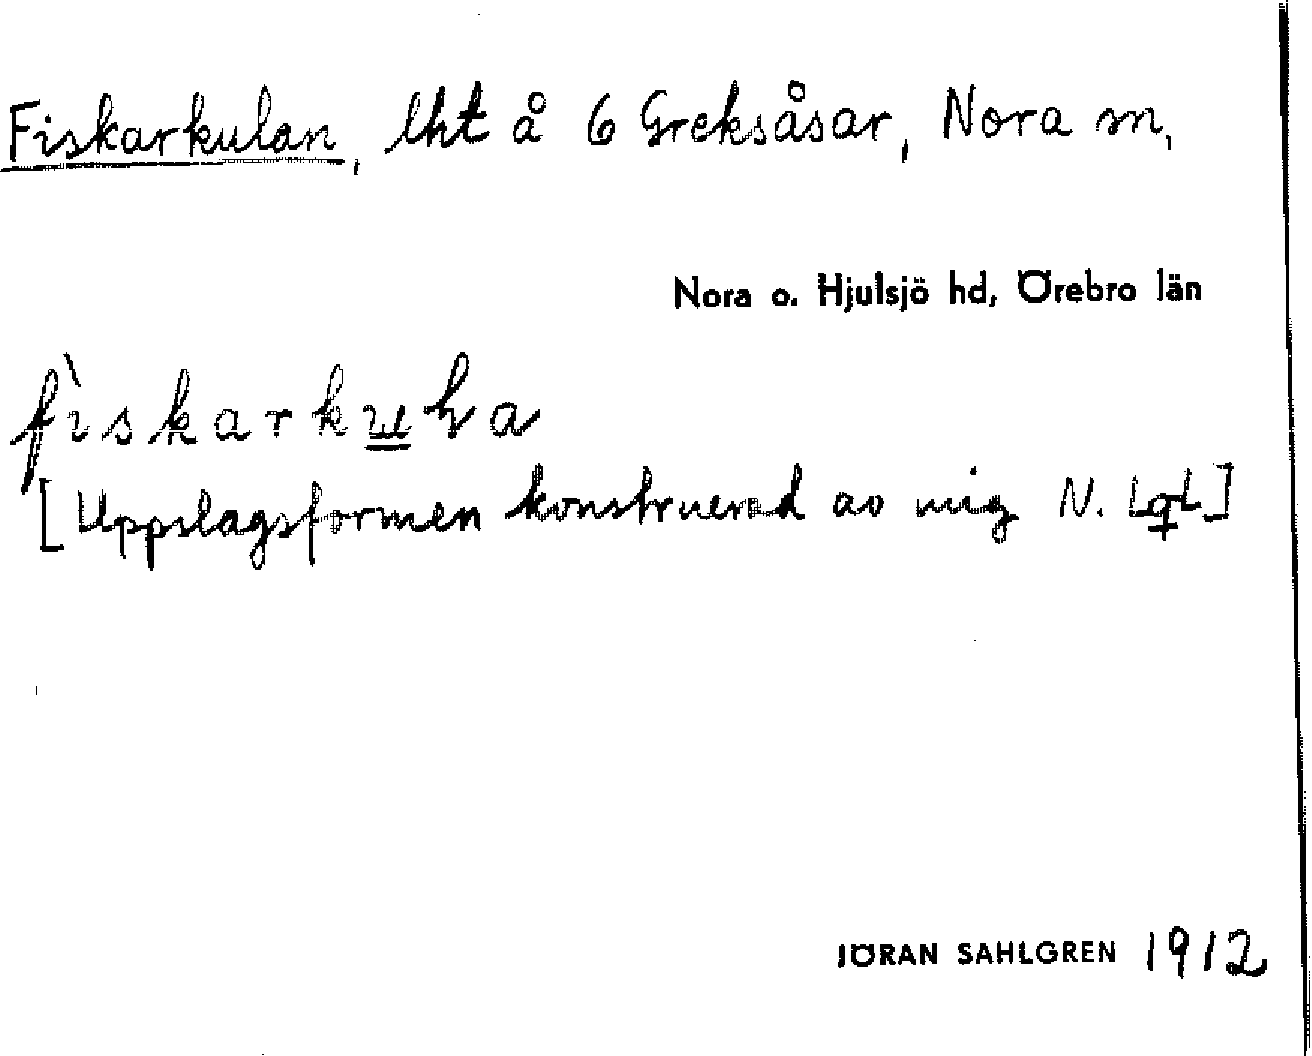 Fiskarkulan, lht å 6 Greksåsar, Nora sn,
Nora o. Hjulsjö hd, Örebro län
[Uppslagsformen konstruerad av mig N.
JÖRAN SAHLGREN 1912